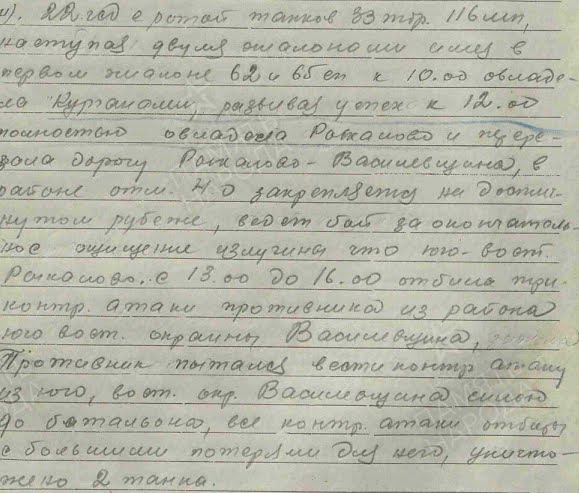 4). 22 гсд с ротой танков 33 тбр. 116 мп,
наступая двумя эшалонами имея в
первом эшалоне 62 и 65 сп к 10.00 овладе-
ла Курганами, развивая успех к 12.00
полностью овладела Рыкалово и пере-
зала дорогу Рыкалово-Василевщина, в
районе отм. 41.0 закрепляется на достиг-
нутом рубеже, ведет бой за окончатель-
ное ощищение излучины что юго-вост.
Рыкалово. с 13.00 до 16.00 отбила три
контр. атаки противника из района
юго вост. окраины Василевщина,
Противник пытался вести контр атаку
из юго, вост. окр. Василевщина силою
до батальона, все контр. атаки отбиты
с большими потерями для него, уничто-
жено 2 танка.